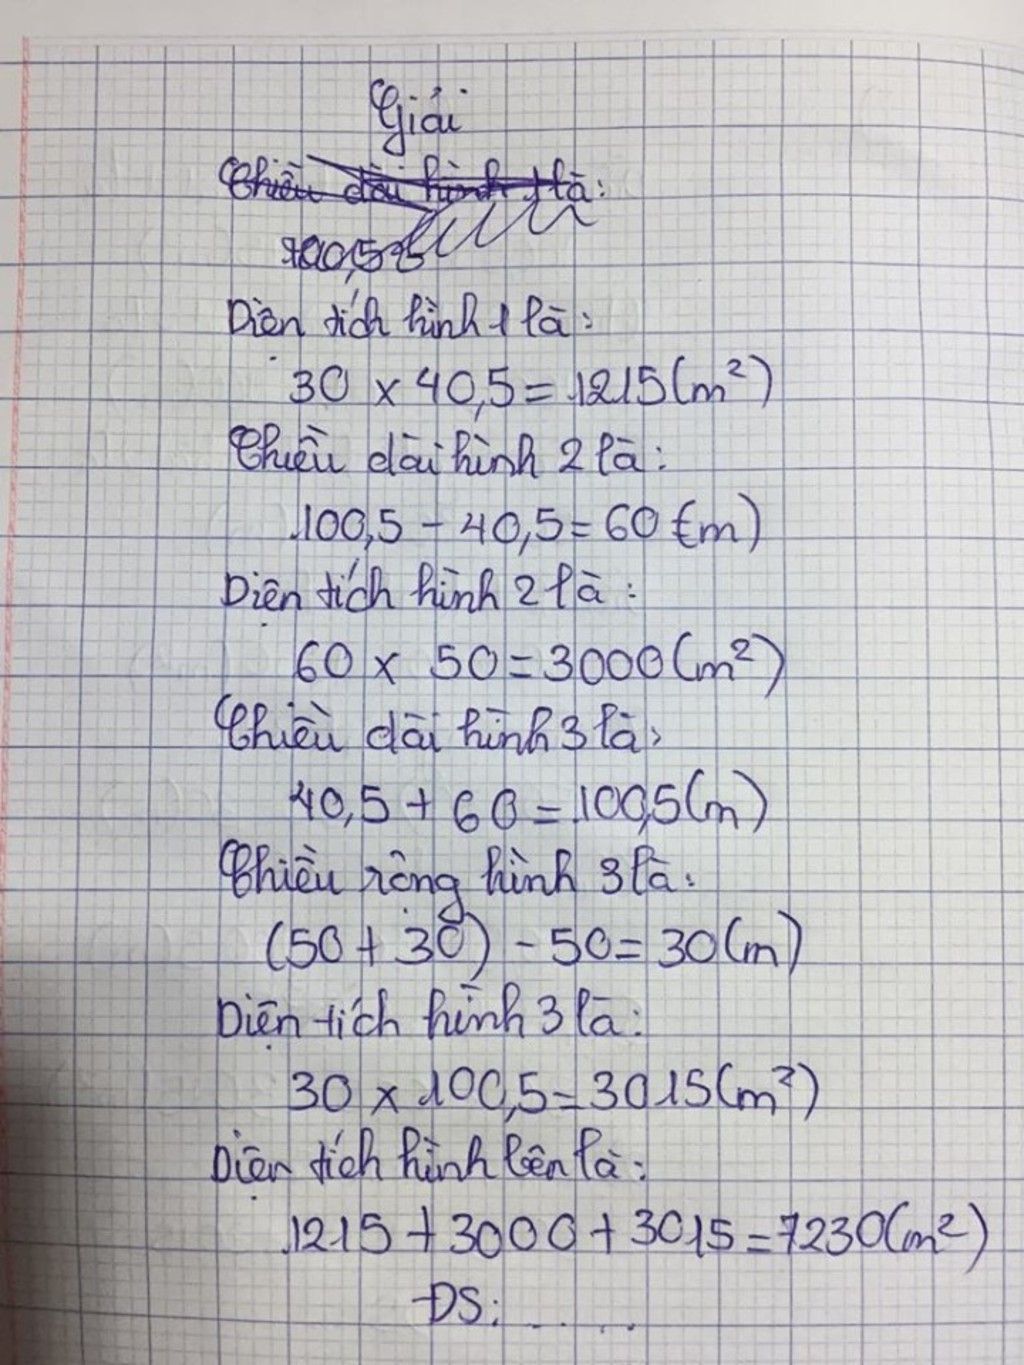 Giải
Chiều dài hình 1 là:
Diện tích hình 1 là:
30 x 40,5 = 1215 (m²)
Chiều dài hình 2 là:
100,5 - 40,5 = 60 (m)
Diện tích hình 2 là:
60 x 50 = 3000 (m²)
Chiều dài hình 3 là:
40,5 + 60 = 100,5 (m)
Chiều rộng hình 3 là:
(50 + 30) - 50 = 30 (m)
Diện tích hình 3 là:
30 x 100,5 = 3015 (m²)
Diện tích hình bên là:
1215 + 3000 + 3015 = 7230 (m²)
ĐS: .....